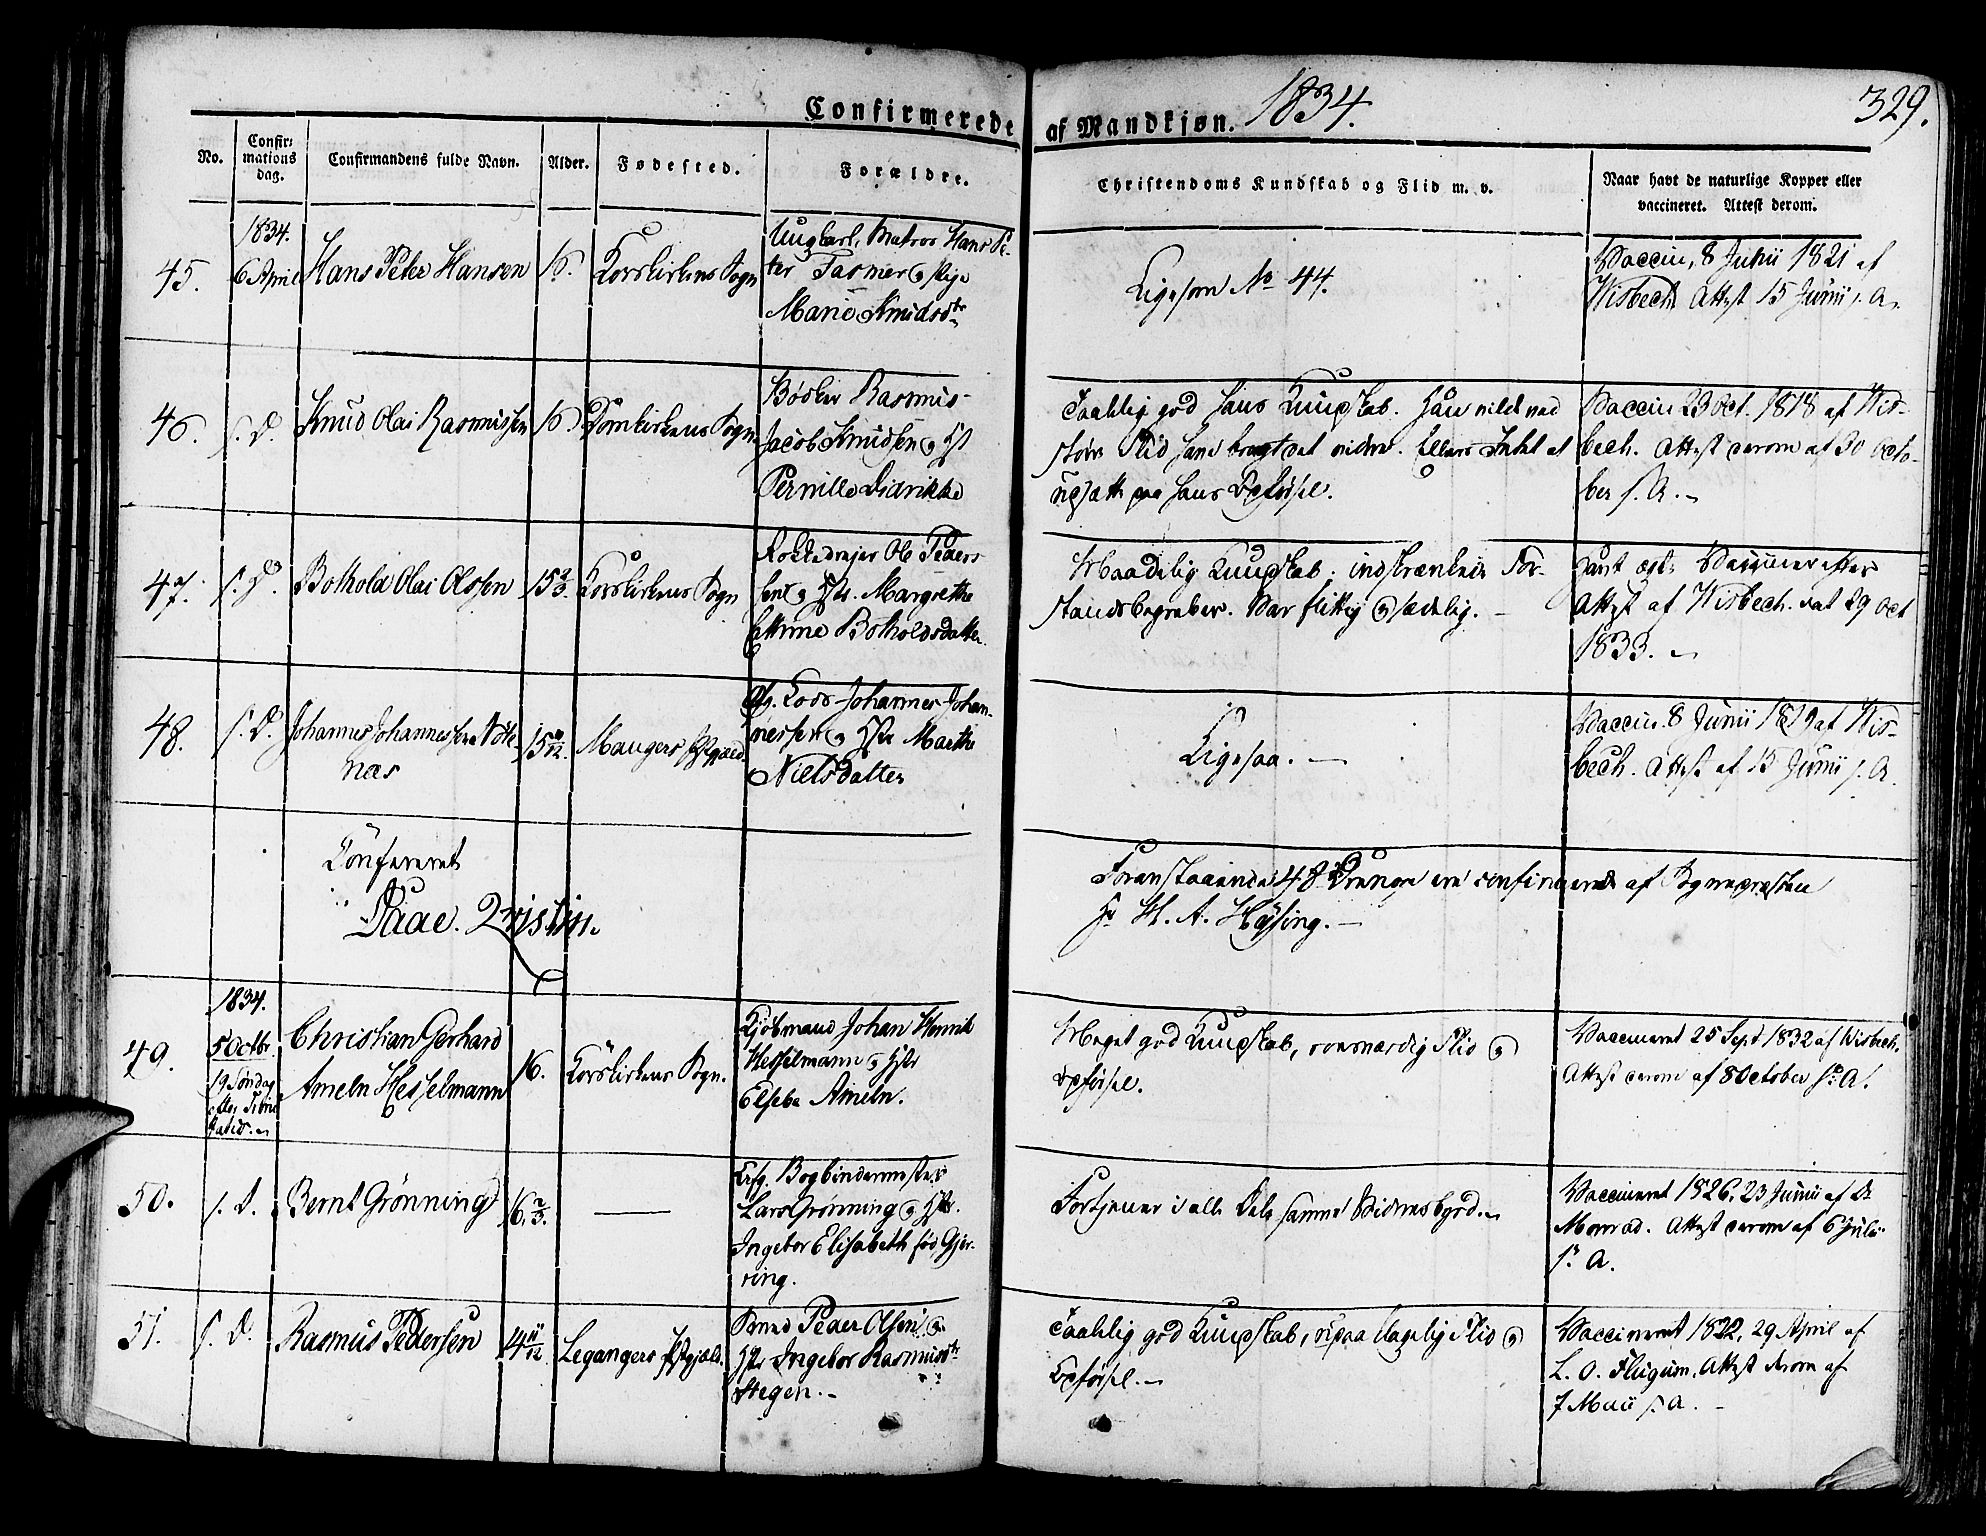 Confirmerede af Mandkjøn. 1834. 329.
No. Confirmations dag. Confirmandens fulde Navn. Alder. Fødested. Forældre. Christendoms Kundskab og Flid m. v. Naar havt de naturlige Kopper eller vaccineret. Attest derom.
1834.
45. 6 April Hans Peter Hansen 16. Korskirkens Sogn
Ungkarl, Matros Hans Pe-
ter Tasmer og Pige
Marie Knudsdtr
Ligesom No 44.
Vaccin. 8 Junii 1821 af
Wisbech Attest 15 Junii s. A.
46. s. D. Knud Olai Rasmussen 16 Domkirkens Sogn
Bødker Rasmus
Jacob Knudsen og Hst
Pernille Didrikke
Taalelig god hans Kundskab. Han vilde ved
større Flid have bragt det videre. Ellers Intet at
udsætte paa hans Opførsel.
Vaccin 23 Oct. 1818 af Wis-
bech. Attest derom af 30 Octo-
ber s. A.
47. s. D. Bothold Olai Olssen 15 2/3 Korskirkens Sogn
Rokkedreier Ole Peder
sen og Hst. Margrethe
Botholdsdatter
Maadelig Kundskab; indskrænkede For-
standsbegreber. Var flittig og sædelig.
Attest af Wisbech dat 29 Oct
1833.
48. s. D. Johannes Johannessen
næs
15 Mangers Pstgjæld.
Johannes Johan-
nessen og Hst Marthe
Nielsdatter
Ligesaa.
Vaccin. 8 Junii 1819 af Wis-
bech. Attest af 15 Junii s. A.
Confereret
Daae. Qvistin.
Foranstaaende 48 Drenge ere confirmerede af Sognepræsten
Hr M. A. Høysing.
1834.
49. 5 Octbr.
19 Søndag
efter Trini
tatis.
Christian Gerhard
Ameln Hesselmann 16. Korskirkens Sogn.
Kjøbmand Johan Henrik
Hesselmann og Hst
Elsebe Ameln.
Meget god Kundskab, roesværdig Flid og
Opførsel.
Vaccineret 25 Sept 1832 af Wisbech.
Attest derom af 8 October s. A.
50. s. D. Bernt Grønning 16 2/3. —
Afg. Bogbindermester
Lars Grønning og Hst.
Ingebor Elisabeth fød Gjer-
ring.
Fortjener i alle Dele samme Vidnesbyrd.
Vaccineret 1826, 23 Junii af Dr
Monrad. Attest derom af 6 Julii
s. A.
51. s. D. Rasmus Pedersen 14 11/12 Legangers Pstgjæld.
Bonde Peder Olsen og
Hst Ingebor Rasmusdtr
Stegen.
Taalelig god Kundskab, upaaklagelig Flid og
Opførsel.
Vaccineret 1822, 29 April af
L. O. Flugum. Attest derom af
7 Maii s. A.